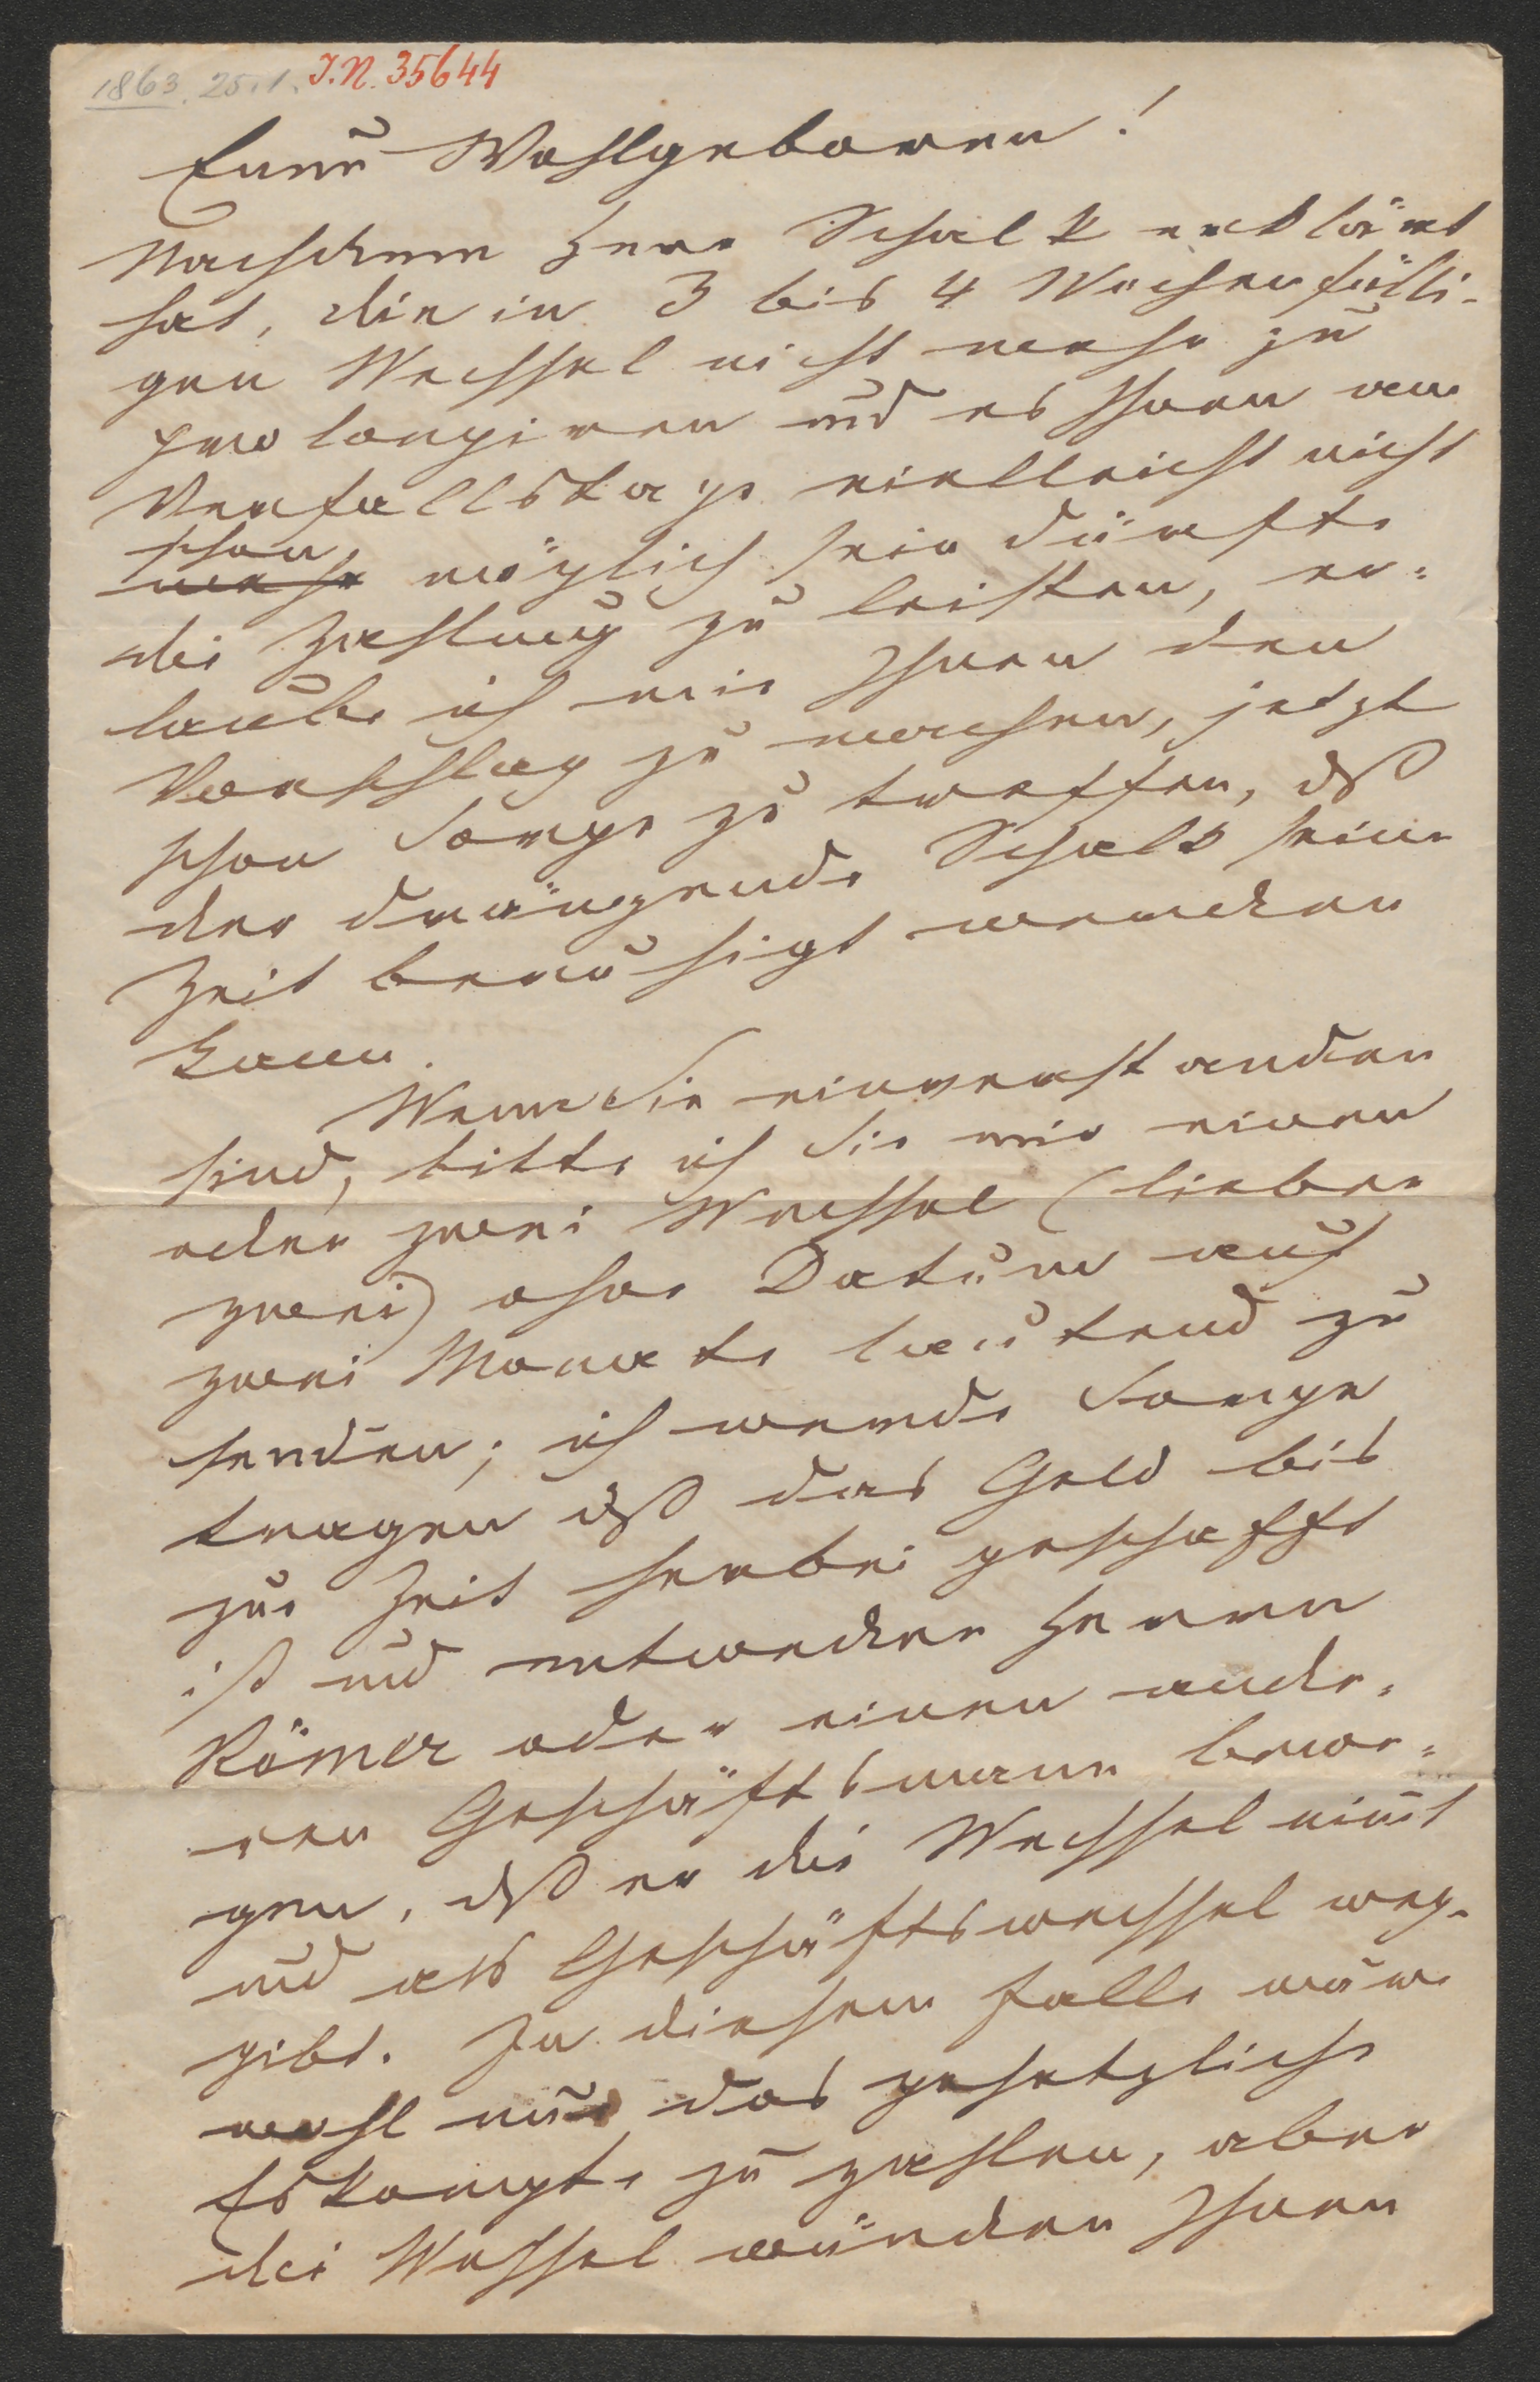 1863. 25.1. I.N. 35644
Euer Wohlgeboren!
Nachdem Herr Schalk erklärt
hat, die in 3 bis 4 Wochen fälli-
gen Wechsel nicht mehr zu
prolongiren und es Ihnen am
Verfallstage vielleicht nicht
schon
mehr möglich sein dürfte
die Zahlung zu leisten, er-
laube ich mir Ihnen den
Vorschlag zu machen, jetzt
schon Sorge zu treffen, dß
der drängende Schalk seiner
Zeit beruhigt werden
kann.
Wenn Sie einverstanden
sind, bitte ich Sie mir einen
oder zwei Wechsel (lieber
zwei) ohne Datum auf
zwei Monate lautend zu
senden; ich werde Sorge
tragen dß das Geld bis
zur Zeit herbei geschafft
ist und entweder Herrn
Römer oder einen ande-
ren Geschäftsmann bewe-
gen, dß er die Wechsel nim̄t
und als Geschäftswechsel weg-
gibt. In diesem Falle wäre
wohl nur das gesetzliche
Eskompte zu zahlen, aber
die Wechsel würden Ihnen